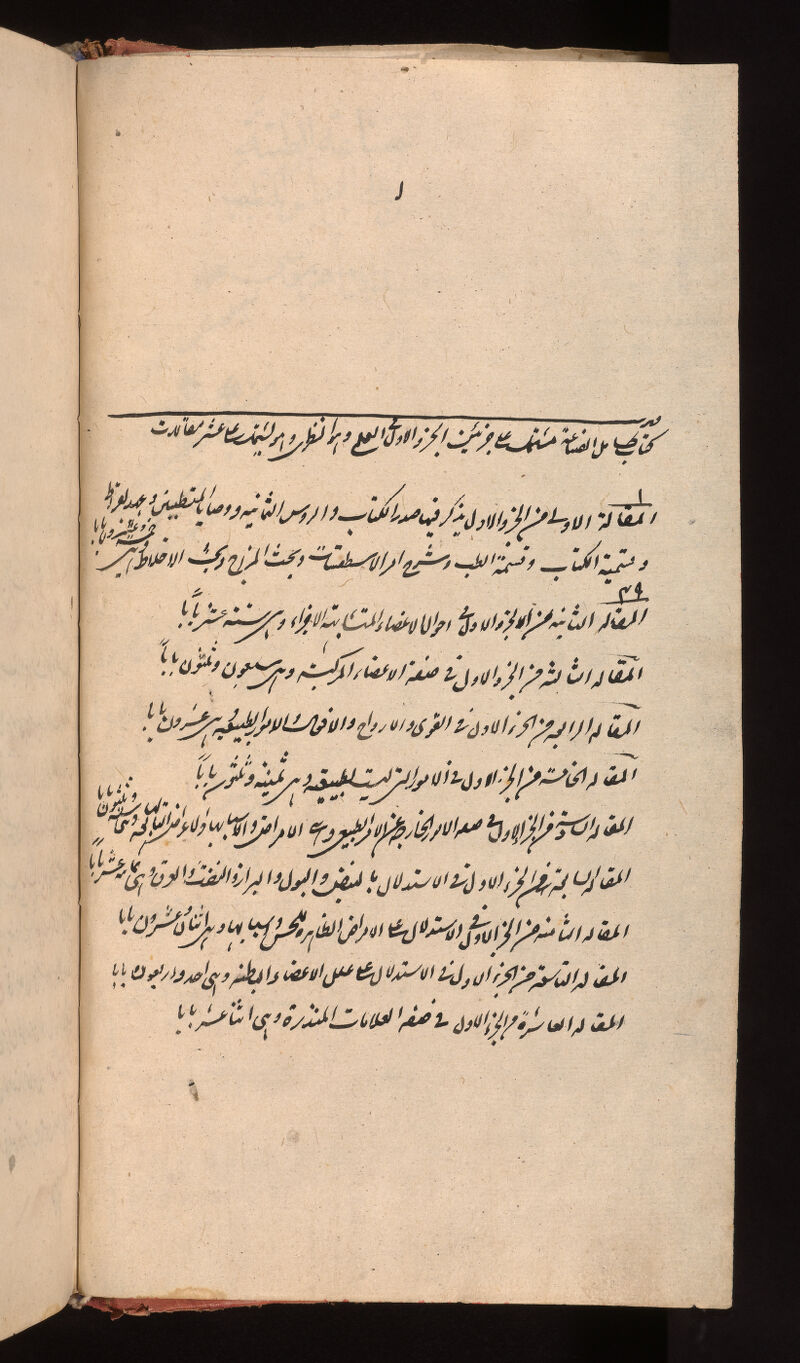 ١
كتاب كامل الصناعة مشتمل على جزئين الجزء الاول فى العلم وهو النظرى وهو يشتمل على عشر مقالات
١
المقالة الاولى من الجزء الاول يذكر فيها صدر الكتاب والروس الثمانيه ووصايا المتطببين وعهد بقراط
وتسمية الكتاب وقسمة الطب وشرح امر الاسطقسات وبحث المزاج وبحث الاخلاط وهى خمسة وعشرون بابا
٤٩
المقاله الثانيه من الجزء الاول فى احوال الاعضاء المتشابهة الاجزاء وهى ستة عشر بابًا
المقاله الثالثه من الجزء الاول فى صفة الاعضاء المركبة وهى سبعون وثلثون بابًا
المقاله الرابعه من الجزء الاول فى القوى والارواح والافعال والامور الطبيعيه وهى عشرون بابا
المقاله الخامسة من الجزء الاول فى الامور التى ليست بطبيعيه وهى ثمنيه وثلثون بابًا
المقاله السادسة من الجزء الاول فى صفه الامور الخارجة عن الامر الطبيعى وهى الامراض والاسبابها والاعراض التابعة لها وهى وثلثون بابا
المقاله السابعة من الجزء الاول فى الاستدلال بالنبض والبول والبراز والنفث والعرق وهى ثمانية عشر بابًا
المقاله الثامنه من الجزء الاول فى الاستدلال على الامراض الظاهرة للحس واسبابها وهى اثنان وعشرون بابا
المقاله التاسعة من الجزء الاول فى الاستدلال على علل الاعضاء الباطنه وهى احد واربعون بابا
المقاله العاشرة من الجزء الاول فى صفه العلامات المنذرة وهى اثنا عشر بابا